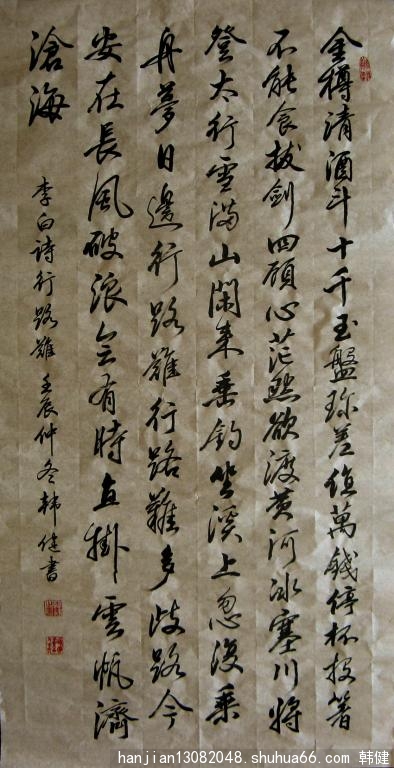 金樽清酒斗十千玉盤珎羞值萬錢停杯投箸
不能食拔劍四顧心茫然欲渡黄河冰塞川將
登太行雪滿山閑來垂釣坐溪上忽復乘
舟夢日邊行路難行路難多歧路今
安在長風破浪会有時直掛雲帆濟
滄海
李白詩行路難 壬辰仲冬韩健書
hanjian13082048.shuhua66.com 韩健